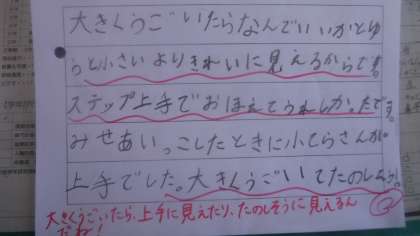 大きくうごいたらなんでいいかとゆ
うと小さいよりきれいに見えるからです。
ステップ上手でおぼえてうれしかったです。
みせあいっこしたときに小てらさんが
上手でした。大きくうごいてたのしそう。
大きくうごいたら、上手に見えたり、たのしそうに見えるん
だね！